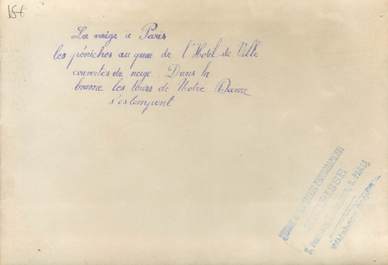 15t
La neige à Paris
les péniches au quai de l'Hôtel de Ville
couvertes de neige. Dans la
brume les tours de Notre Dame
s'estompent